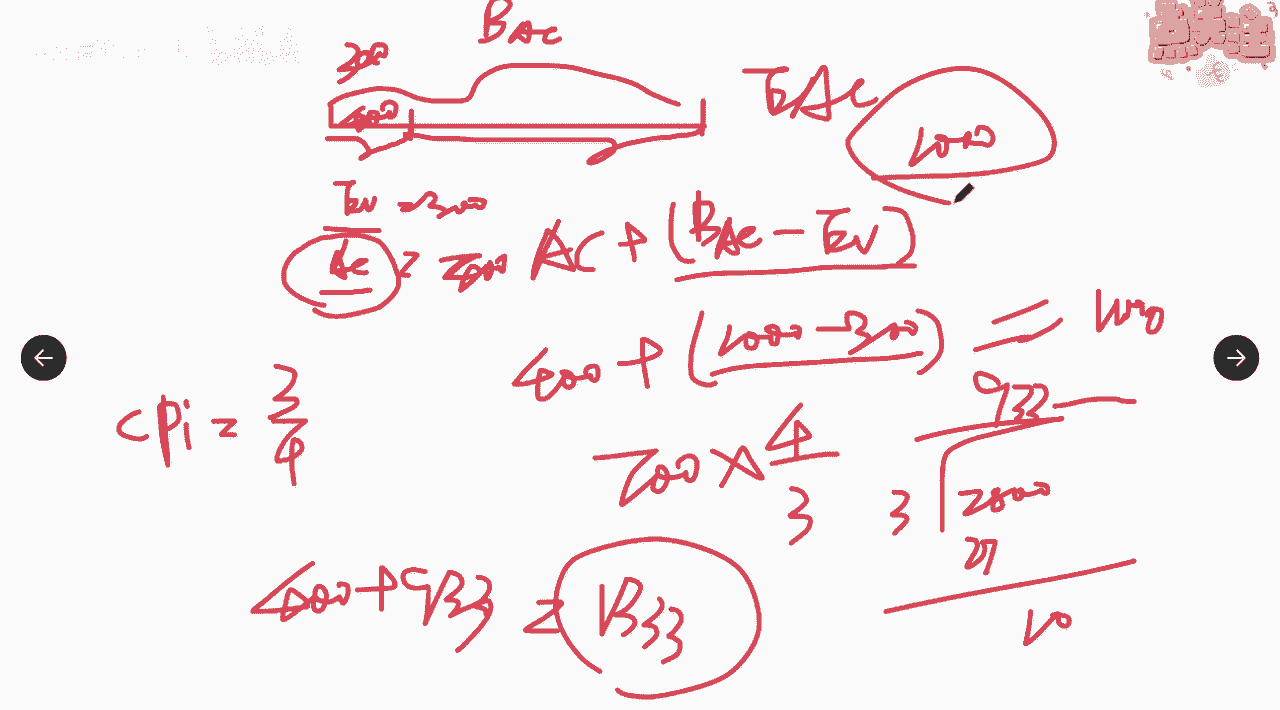 点关注
BAC
300
400
EAC
1000
EV = 300
AC =
AC + (BAC - EV)
400 + (1000 - 300) = 1100
CPi = 3/4
700 × 4/3
933
3
2800
27
10
400 + 933 = 1333